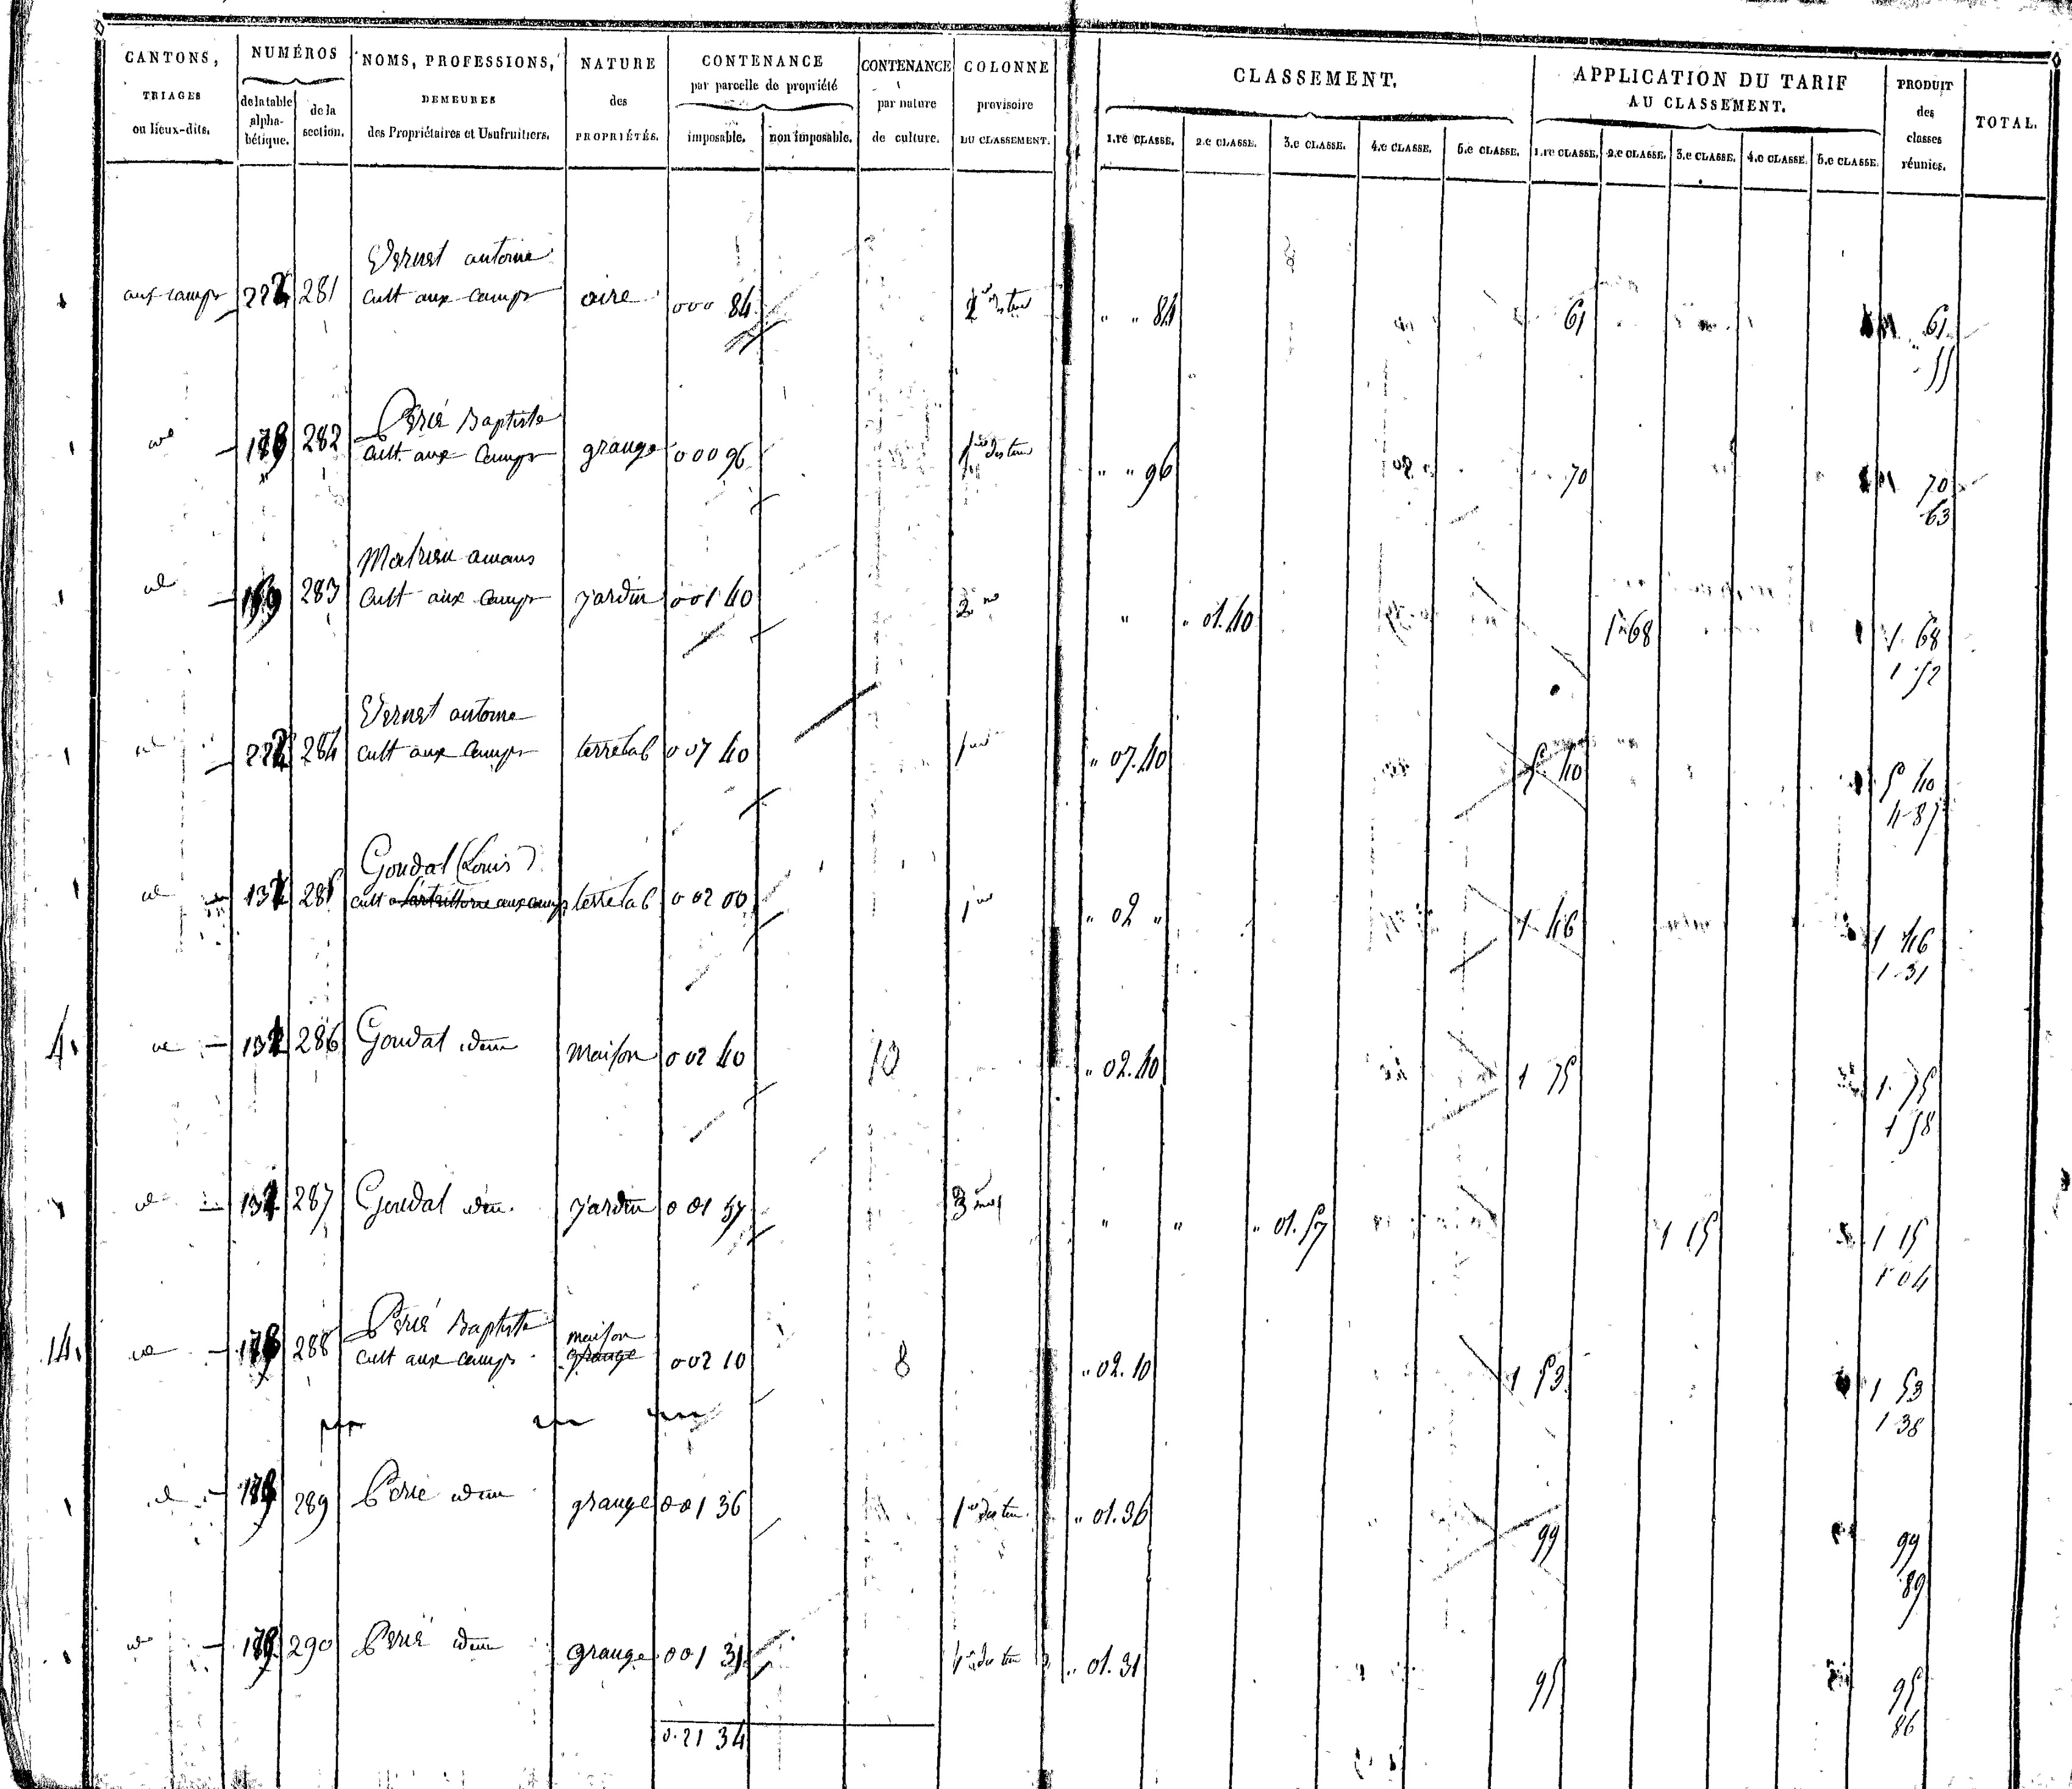 CANTONS, TRIAGES ou lieux-dits.
NUMÉROS
de la table alpha-bétique.
de la section.
NOMS, PROFESSIONS, DEMEURES des Propriétaires et Usufruitiers.
NATURE des PROPRIÉTÉS.
CONTENANCE par parcelle de propriété
imposable.
non imposable.
CONTENANCE par nature de culture.
COLONNE provisoire DU CLASSEMENT.
CLASSEMENT.
1.re CLASSE. 2.e CLASSE. 3.e CLASSE. 4.e CLASSE. 5.e CLASSE.
APPLICATION DU TARIF AU CLASSEMENT.
1.re CLASSE. 2.e CLASSE. 3.e CLASSE. 4.e CLASSE. 5.e CLASSE.
PRODUIT des classes réunies.
TOTAL.
Vernet antoine
aux camps 281 cult aux camps aire 0 00 84 " " 84 61 61
55
Périé Baptiste
282 cult. aux Camps grange 0 00 96 " " 96 70 70
63
amans
283 cult aux camps jardin 0 01 40 2me " " 01.40 1 68 1 68
1 52
Vernet antoine
284 cult aux Camps terre lab 0 07 40 1re " 07.40 5 40 5 40
4 87
Goudal (Louis)
285 cult aux camps terre lab 0 02 00 1re " 02 " 1 46 1 46
1 31
4. 286 Goudal idem maison 0 02 40 10 " 02.40 1 75 1 75
1 58
287 Goudal idem jardin 0 01 57 3me " " " 01.57 1 15 1 15
1 04
Périé Baptiste maison
14. 288 cult aux camps grange 0 02 10 8 " 02.10 1 53 1 53
1 38
289 Périé idem grange 0 01 36 " 01.36 99 99
89
290 Périé idem grange 0 01 31 " 01.31 95 95
86
0.21 34